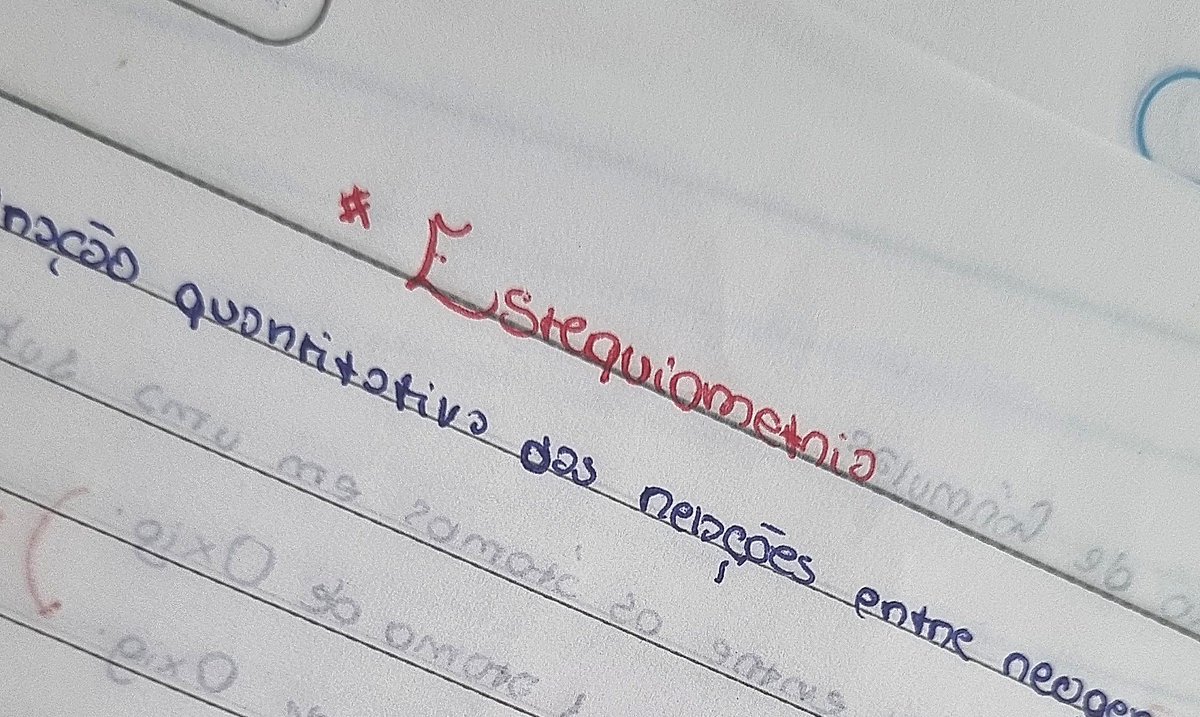 * Estequiometria
nação quantitativa das relações entre reagen